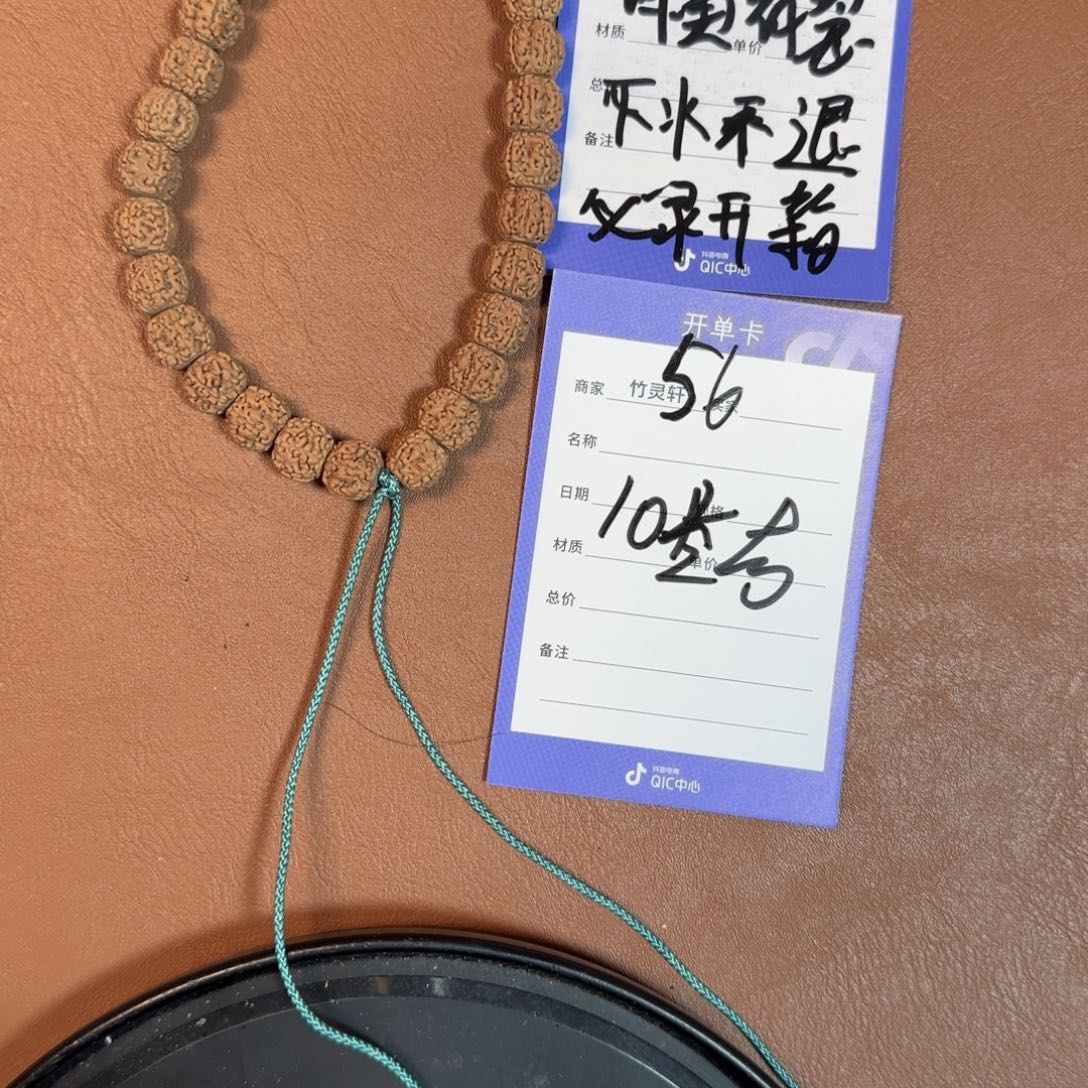 材质
单价
总
下水不退
备注
必录开箱
抖音电商
QIC中心
开单卡
56
商家 竹灵轩
名称
日期
10
材质
单价
总价
备注
抖音电商
QIC中心